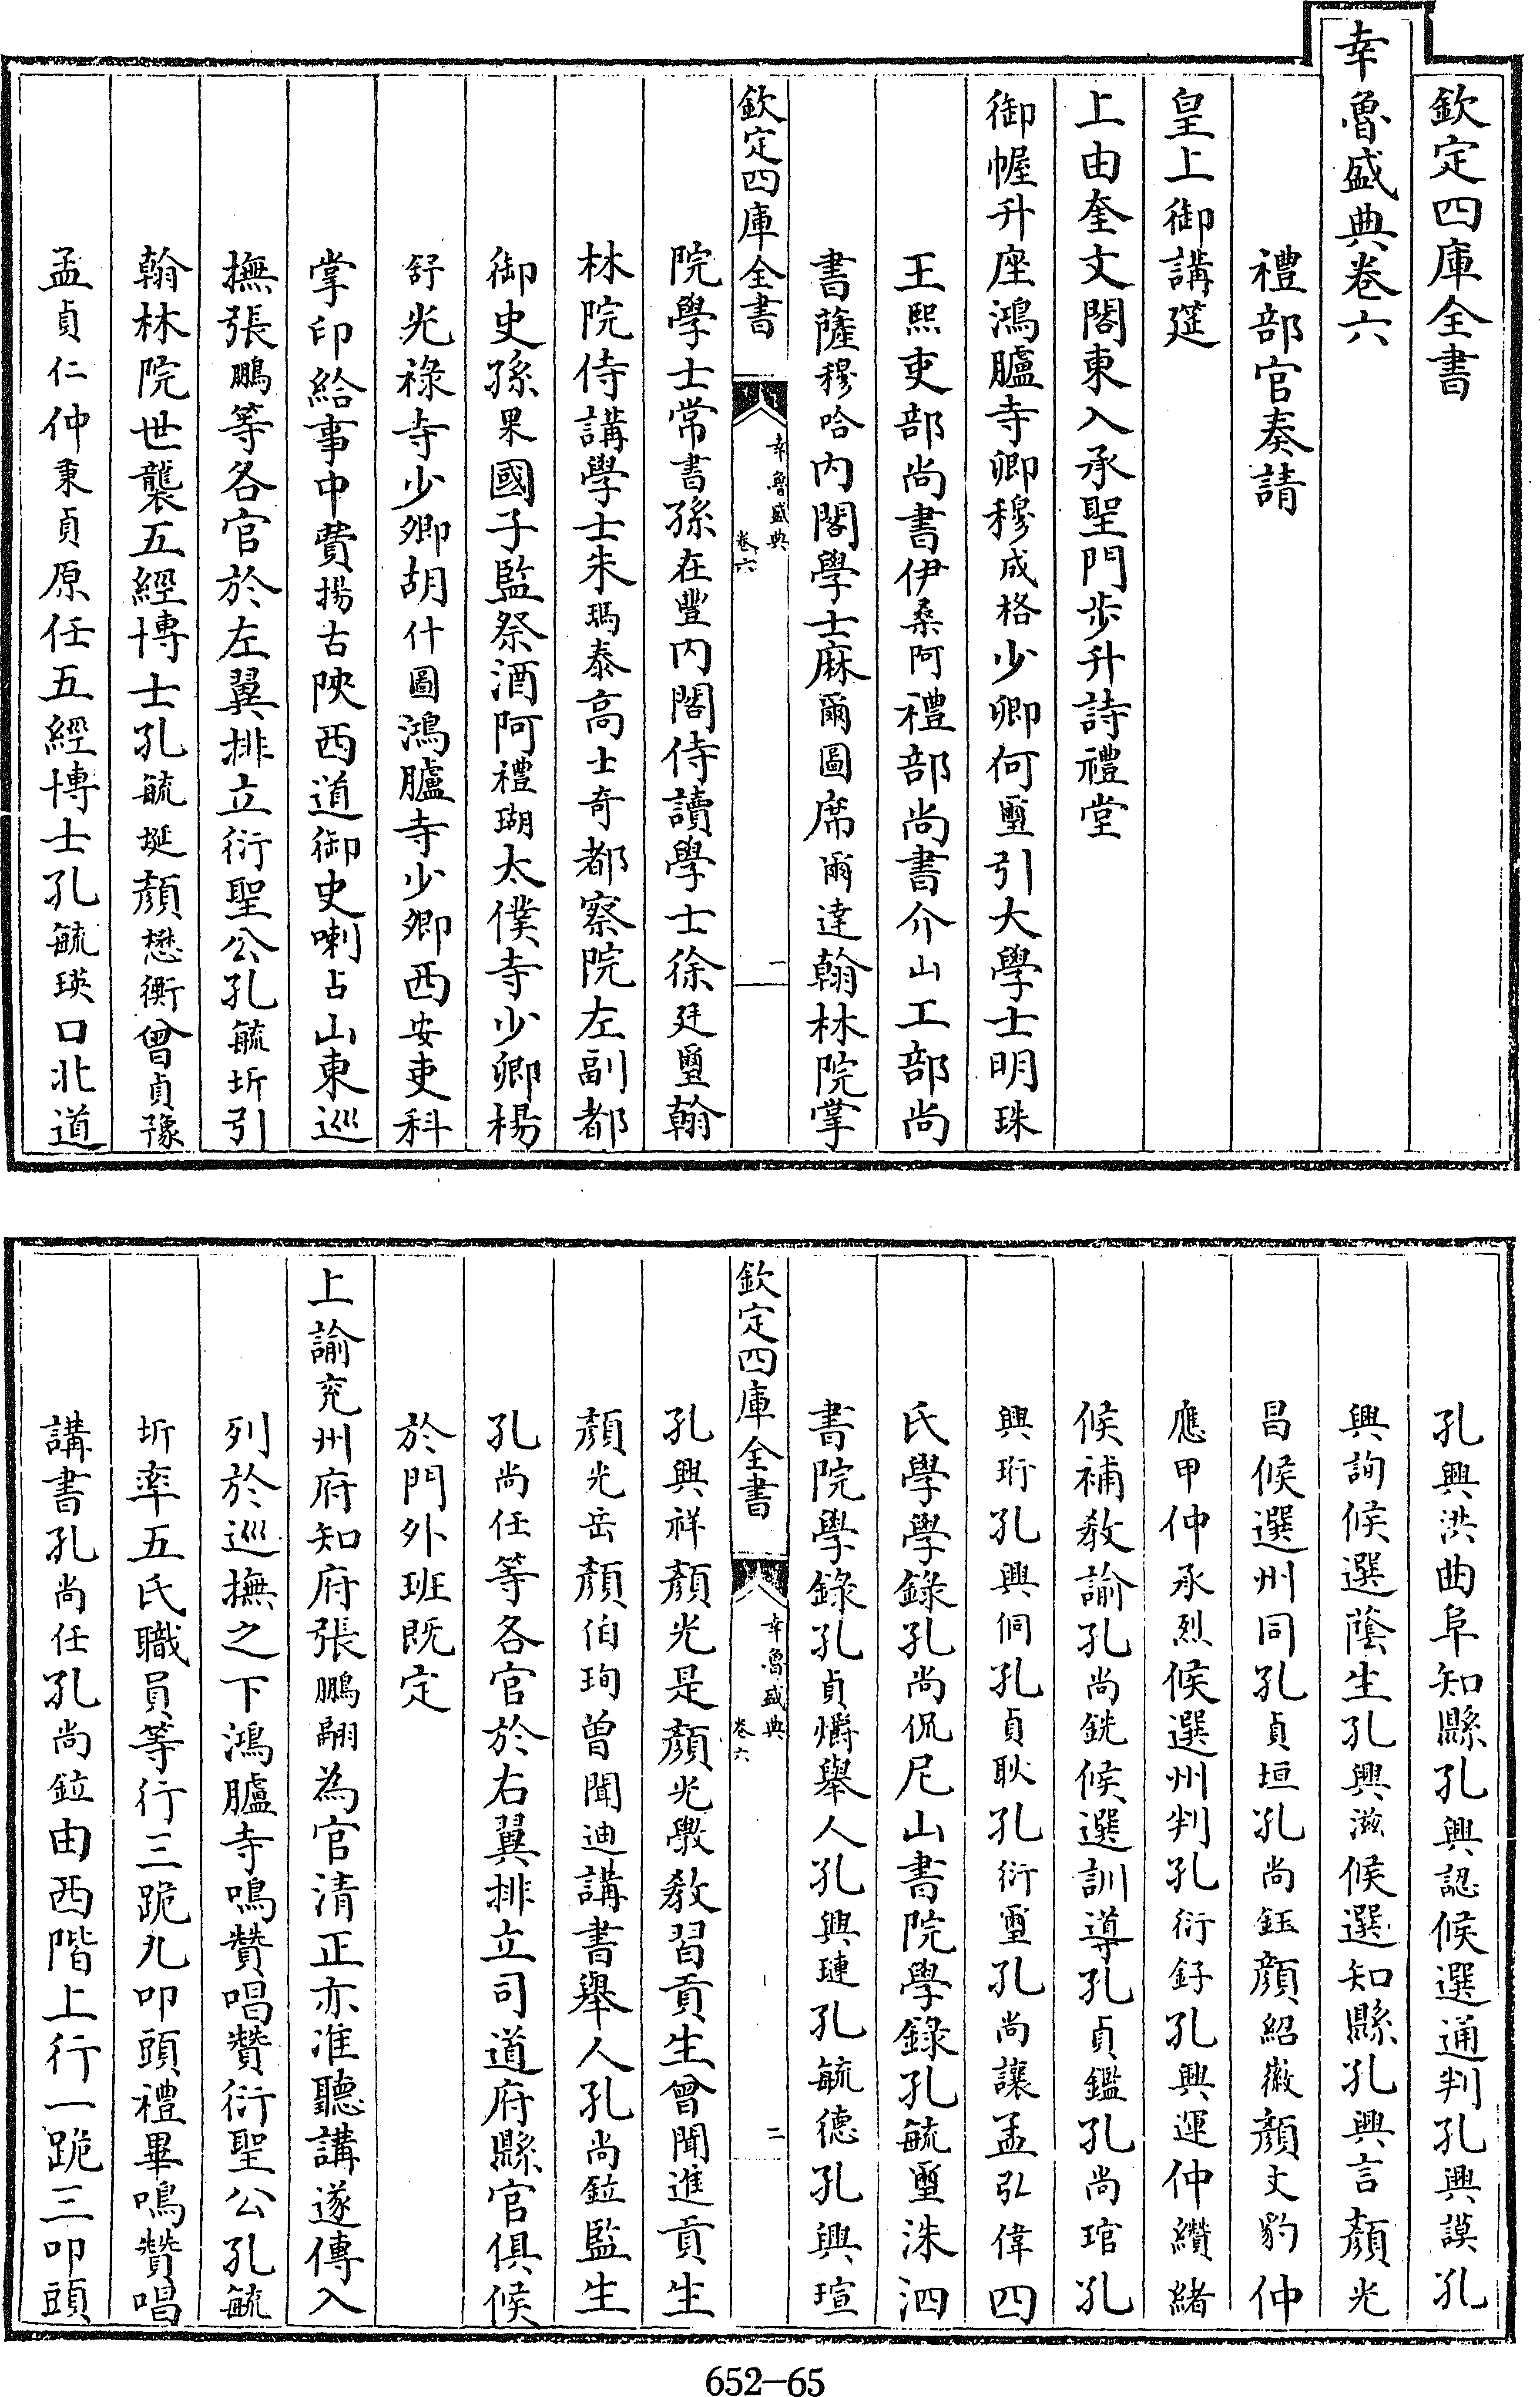 欽定四庫全書
幸魯盛典卷六
禮部官奏請
皇上御講筵
上由奎文閣東入承聖門步升詩禮堂
御幄升座鴻臚寺卿穆成格少卿何璽引大學士明珠
王熙吏部尚書伊桑阿禮部尚書介山工部尚
書薩穆哈內閣學士麻爾圖席爾達翰林院掌
欽定四庫全書
幸魯盛典
卷六
一
院學士常書孫在豐內閣侍讀學士徐廷璽翰
林院侍講學士朱瑪泰高士奇都察院左副都
御史孫果國子監祭酒阿禮瑚太僕寺少卿楊
舒光祿寺少卿胡什圖鴻臚寺少卿西安吏科
掌印給事中費揚古陝西道御史喇占山東巡
撫張鵬等各官於左翼排立衍聖公孔毓圻引
翰林院世襲五經博士孔毓埏顏懋衡曾貞豫
孟貞仁仲秉貞原任五經博士孔毓瑛口北道
孔興洪曲阜知縣孔興認候選通判孔興謨孔
興詢候選蔭生孔興滋候選知縣孔興言顏光
昌候選州同孔貞垣孔尚鈺顏紹徽顏文豹仲
應甲仲承烈候選州判孔衍釪孔興運仲纘緒
候補教諭孔尚銑候選訓導孔貞鑑孔尚琯孔
興珩孔興侗孔貞耿孔衍璽孔尚讓孟弘偉四
氏學學錄孔尚侃尼山書院學錄孔毓璽洙泗
書院學錄孔貞爝舉人孔興璉孔毓德孔興瑄
欽定四庫全書
幸魯盛典
卷六
二
孔興祥顏光是顏光斆教習貢生曾聞進貢生
顏光岳顏伯珣曾聞迪講書舉人孔尚鉝監生
孔尚任等各官於右翼排立司道府縣官俱候
於門外班既定
上諭兖州府知府張鵬翮為官清正亦准聽講遂傳入
列於巡撫之下鴻臚寺鳴贊唱贊衍聖公孔毓
圻率五氏職員等行三跪九叩頭禮畢鳴贊唱
講書孔尚任孔尚鉝由西階上行一跪三叩頭
652-65